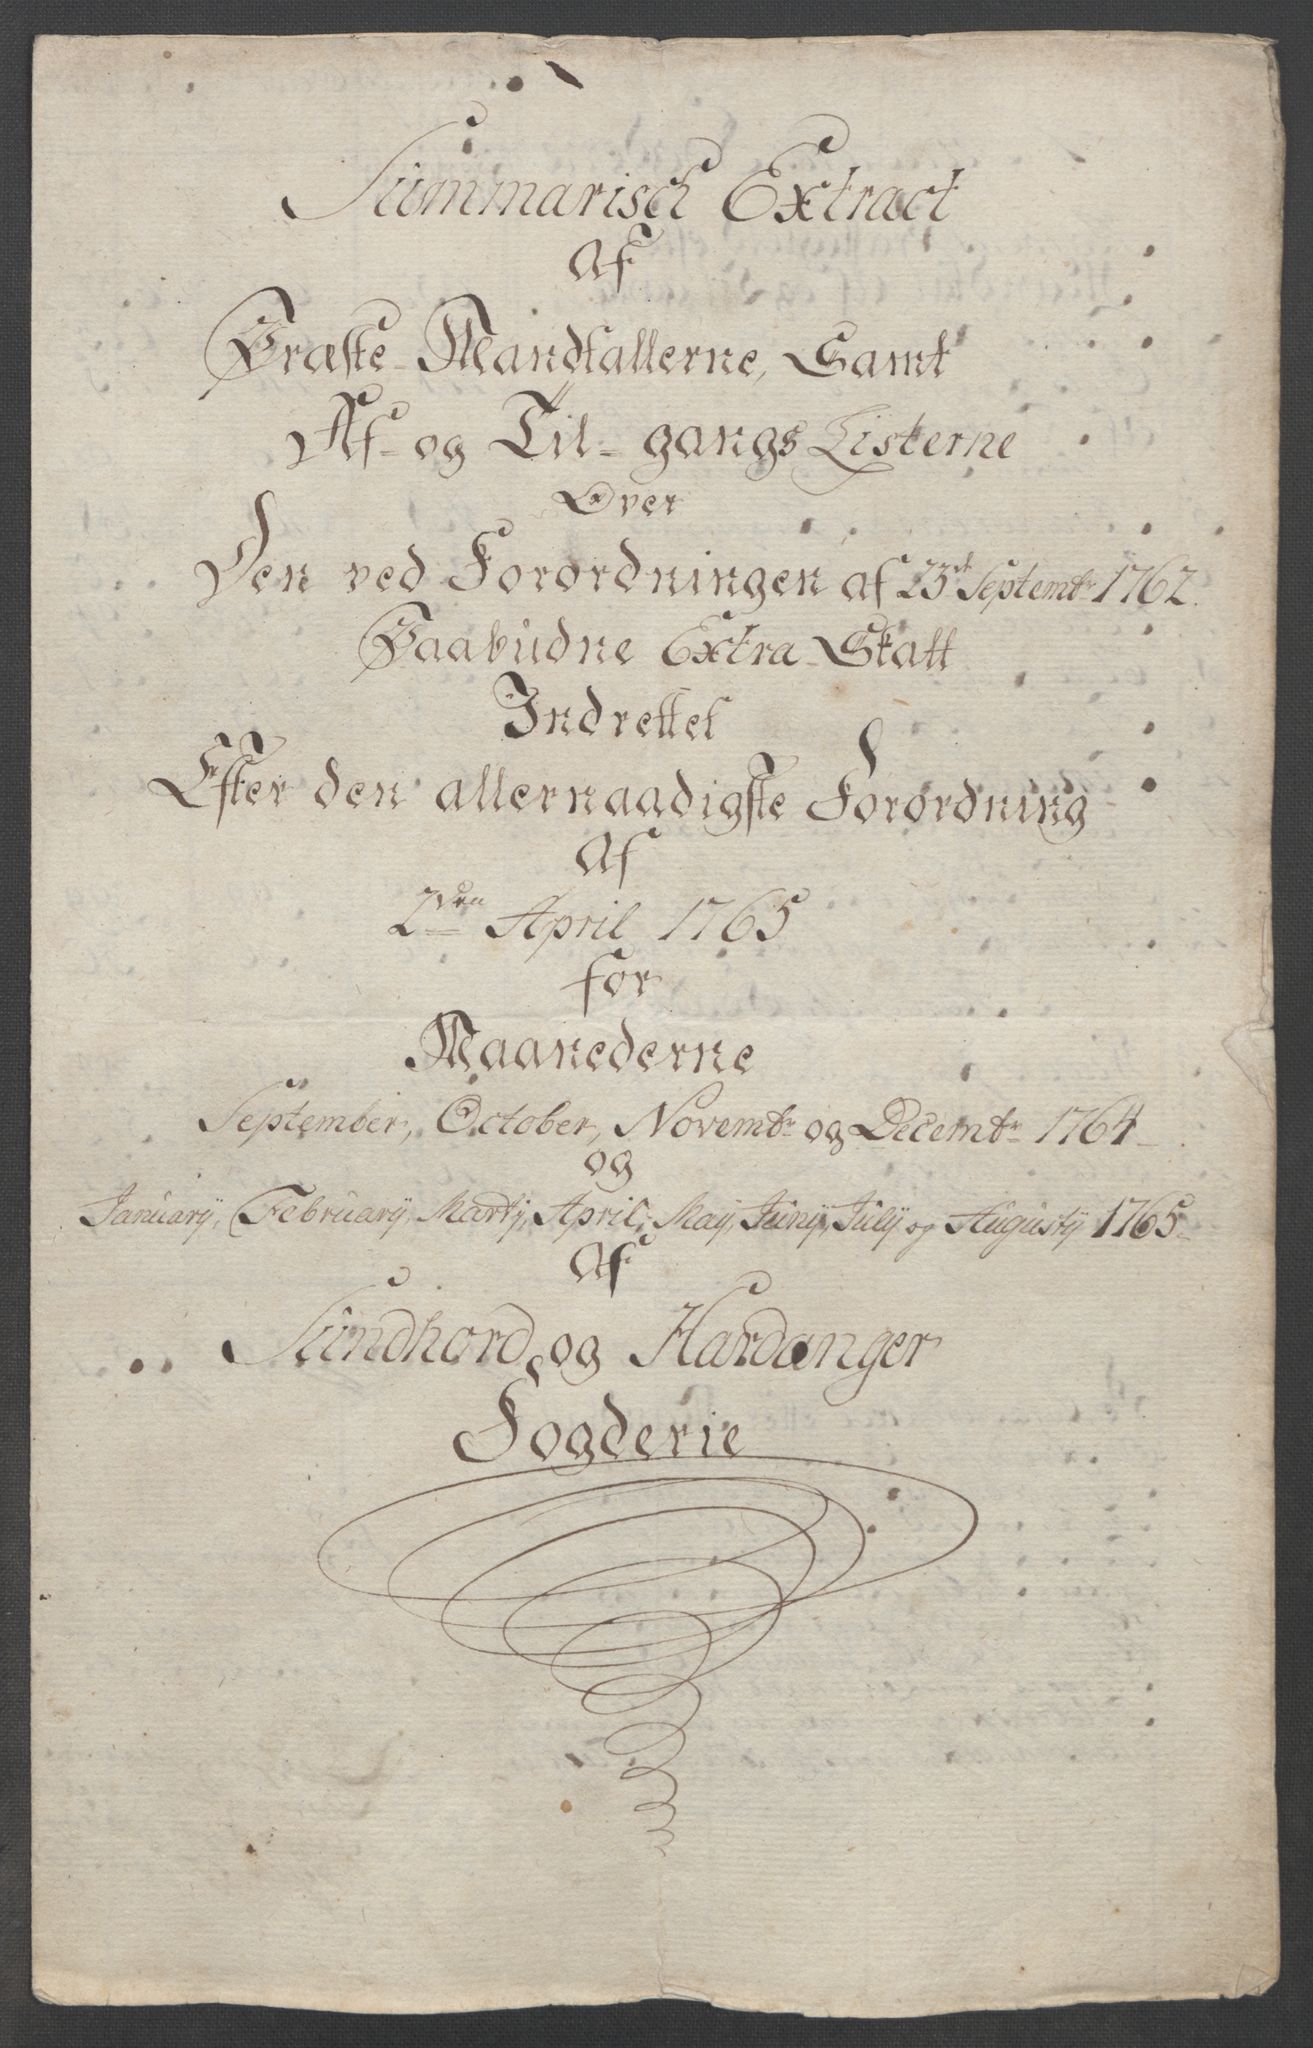 Summarisch Extract
af
Præste-Mandtallerne, Samt
Af- og Til-gangs Listerne
Over
Den ved Forordningen af 23de Septembr 1762.
Paabudne Extra-Skatt
Indrettet
Efter den allernaadigste Forordning
af
2den April 1765
for
Maanederne
September, October, Novembr og Decembr 1764
og
Januarÿ, Februarÿ, Martÿ, April, Maÿ, Junÿ, Julÿ og Augustÿ 1765
af
Sundhord og Hardanger
Fogderie